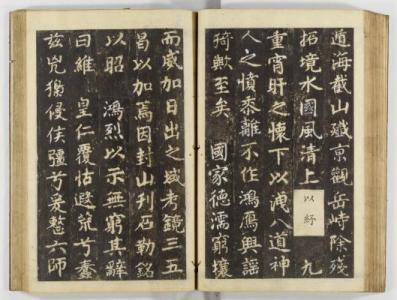 道海截山殲京觀岳峙除殘
拓境水國風清上以紓九
重宵旰之懷下以洩八道神
人之憤黍離不作鴻鴈興謠
猗歟至矣 國家德濡窮壤
而威加日出之域考鏡三五
曷以加焉因封山刊石勒銘
以昭 鴻烈以示無窮其辭
曰維 皇仁覆怙遐荒兮蠢
茲兇狡侵佚疆兮爰整六師